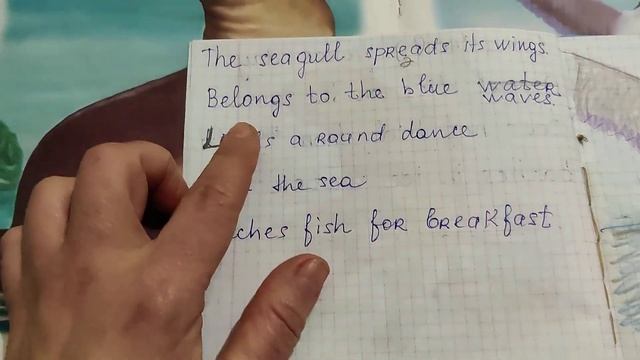 The seagull spreads its wings.
Belongs to the blue water
waves.
a Round dance
the sea
fish for breakfast.